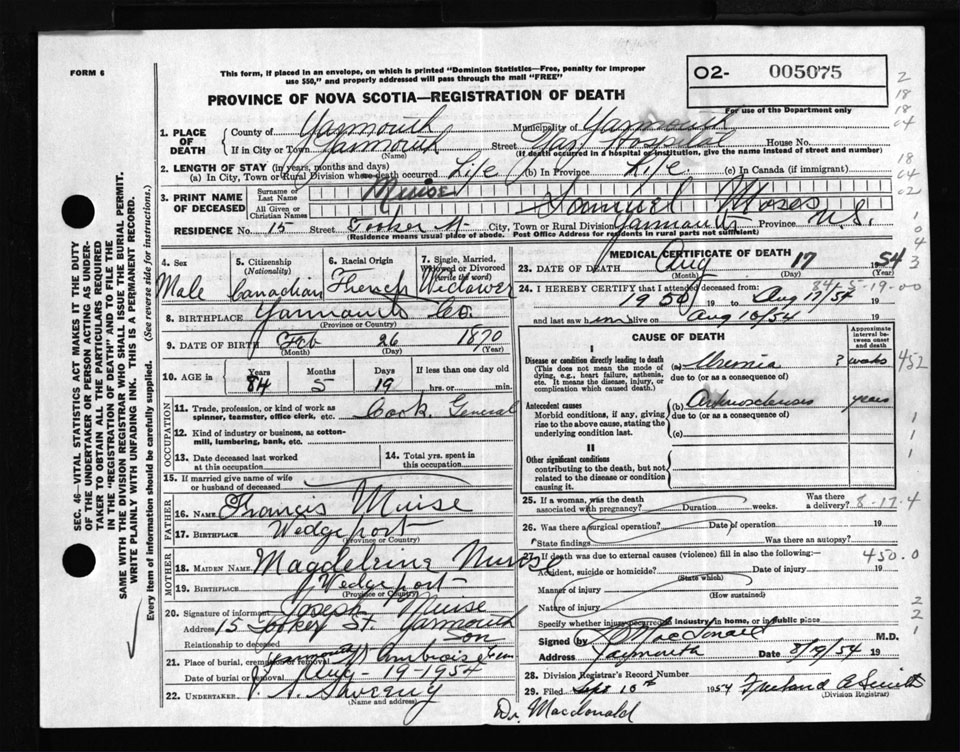 FORM 6
This form, if placed in an envelope, on which is printed "Dominion Statistics—Free, penalty for improper
use $50," and properly addressed will pass through the mail "FREE"
O2- 005075
For use of the Department only
PROVINCE OF NOVA SCOTIA—REGISTRATION OF DEATH
1. PLACE OF DEATH
County of Yarmouth Municipality of Yarmouth
If in City or Town Yarmouth Street Hospital House No.
(Name) (If death occurred in a hospital or institution, give the name instead of street and number)
2. LENGTH OF STAY (in years, months and days)
(a) In City, Town or Rural Division where death occurred Life (b) In Province Life (c) In Canada (if immigrant)
3. PRINT NAME OF DECEASED
Surname or Last Name Muise
All Given or Christian Names Samuel Moses
RESIDENCE No. 15 Street Tooker St. City, Town or Rural Division Yarmouth Province N.S.
(Residence means usual place of abode. Post Office Address for residents in rural parts not sufficient)
4. Sex Male
5. Citizenship (Nationality) Canadian
6. Racial Origin French
7. Single, Married, Widowed or Divorced (write the word) Widower
8. BIRTHPLACE Yarmouth Co.
(Province or Country)
9. DATE OF BIRTH Feb 26 1870
(Month) (Day) (Year)
10. AGE in Years 84 Months 5 Days 19 If less than one day hrs. or min.
OCCUPATION
11. Trade, profession, or kind of work as spinner, teamster, office clerk, etc. Cook General
12. Kind of industry or business, as cotton-mill, lumbering, bank, etc.
13. Date deceased last worked at this occupation
14. Total yrs. spent in this occupation
15. If married give name of wife or husband of deceased
FATHER
16. NAME Francis Muise
17. BIRTHPLACE Wedgeport
(Province or Country)
MOTHER
18. MAIDEN NAME Magdeleine
19. BIRTHPLACE Wedgeport
(Province or Country)
20. Signature of informant Joseph Muise
Address 15 Tooker St. Yarmouth
Relationship to deceased Son
21. Place of burial, cremation or removal Yarmouth St Ambroise Cem
Date of burial or removal Aug-19-1954
22. UNDERTAKER V. S. Sweeny
(Name and address)
MEDICAL CERTIFICATE OF DEATH
23. DATE OF DEATH Aug 17 1954
(Month) (Day) (Year)
84-5-19-00
24. I HEREBY CERTIFY that I attended deceased from:
1950 19 to Aug 17/54 19
and last saw him alive on Aug 16/54 19
CAUSE OF DEATH
Approximate interval between onset and death
I
Disease or condition directly leading to death (a) Uremia 3 weeks
(This does not mean the mode of dying, e.g., heart failure, asthenia, etc. It means the disease, injury, or complication which caused death.)
due to (or as a consequence of)
Antecedent causes (b) Arteriosclerosis years
Morbid conditions, if any, giving rise to the above cause, stating the underlying condition last.
due to (or as a consequence of)
(c)
II
Other significant conditions
contributing to the death, but not related to the disease or condition causing it.
25. If a woman, was the death associated with pregnancy? Duration weeks. Was there a delivery?
8-17-4
26. Was there a surgical operation? Date of operation 19
State findings Was there an autopsy?
27. If death was due to external causes (violence) fill in also the following:—
450.0
Accident, suicide or homicide? Date of injury 19
(State which)
Manner of injury
(How sustained)
Nature of injury
Specify whether injury occurred in industry, in home, or in public place
Signed by MacDonald M.D.
Address Yarmouth Date 8/19/54 19
28. Division Registrar's Record Number
29. Filed Sept 10th 1954
(Division Registrar)
Dr. Macdonald
SEC. 46—VITAL STATISTICS ACT MAKES IT THE DUTY
OF THE UNDERTAKER OR PERSON ACTING AS UNDER-
TAKER TO OBTAIN ALL THE PARTICULARS REQUIRED
IN THE "REGISTRATION OF DEATH" AND TO FILE THE
SAME WITH THE DIVISION REGISTRAR WHO SHALL ISSUE THE BURIAL PERMIT.
WRITE PLAINLY WITH UNFADING INK. THIS IS A PERMANENT RECORD.
Every item of information should be carefully supplied. (See reverse side for instructions.)